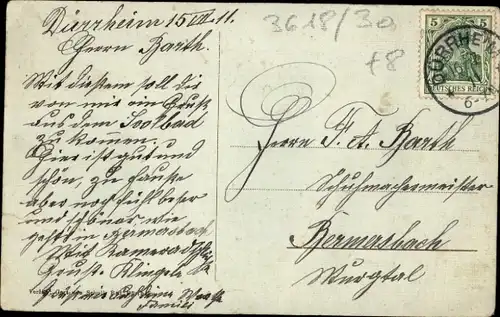 Dürrheim 15 VII. 11.
Herrn Barth.
Mit diesem soll dir
von mir ein Gruß
aus dem Soolbad
zu kommen.
Hier ist gut und
schön, zu Hause
aber noch viel beser
und schöner wie
gehts in
Mit Kameradschl.
Gruß Klingele
Gruß
Familie
3618/30
+8
5 5
DEUTSCHES REICH
DÜRRHEIM
Herrn F. A. Barth
Schuhmachermeister
Bermersbach
Murgtal